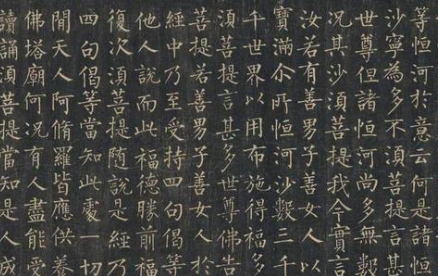 等恒河於意云何是諸恒
沙寧為多不須菩提言甚
世尊但諸恒河尚多無數
况其沙須菩提我今實言
汝若有善男子善女人以
寶滿尒所恒河沙數三千
千世界以用布施得福多
須菩提言甚多世尊佛告
菩提若善男子善女人於
經中乃至受持四句偈等
他人說而此福德勝前福
復次須菩提隨說是經乃
四句偈等當知此處一切
間天人阿脩羅皆應供養
佛塔廟何況有人盡能受
讀誦須菩提當知是人成